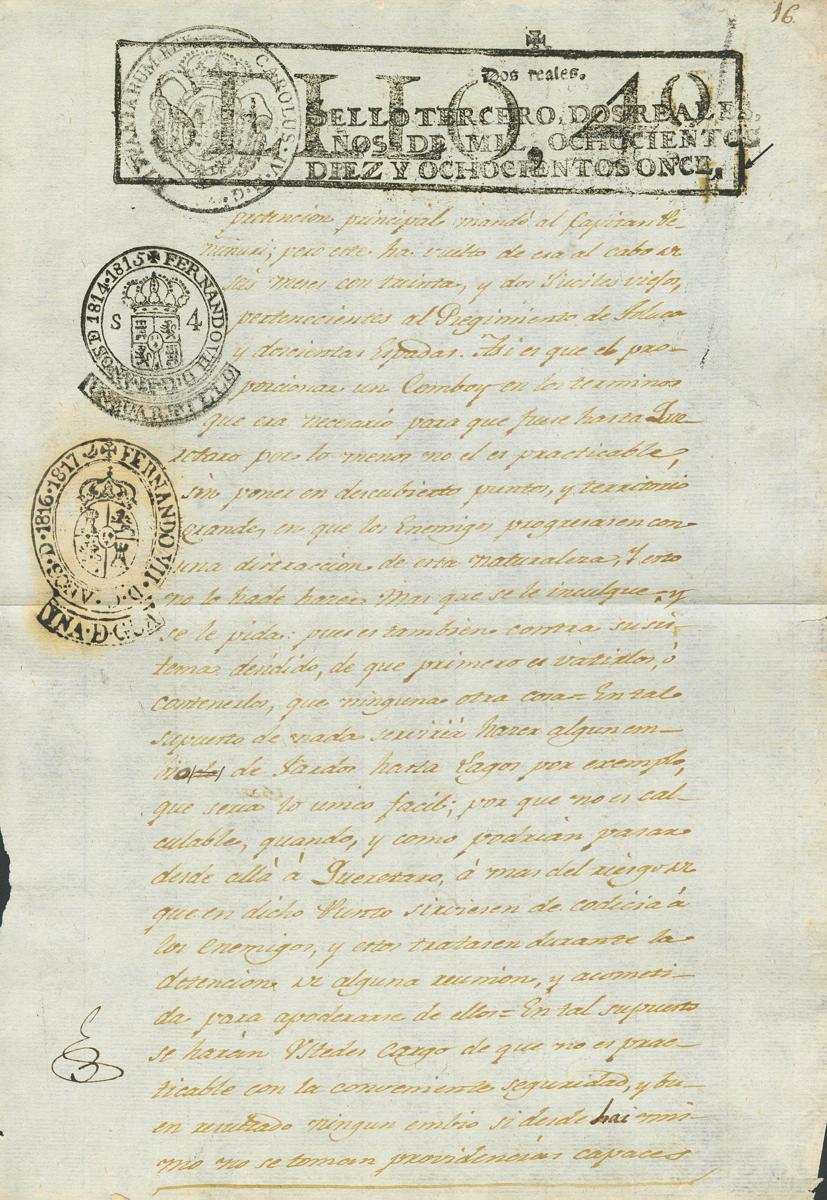 16.
SELLO, 4º
Dos reales.
SELLO TERCERO, DOS REALES,
AÑOS DE MIL OCHOCIENTOS
DIEZ Y OCHOCIENTOS ONCE,
CAROLUS·IV·D·G· HISPANIARUM REX
pretencion principal mandó al Capitan
pero este ha vuelto de esa al cabo de
seis meses con treinta, y dos Fusiles viejos,
pertenecientes al Regimiento de Toluca
y doscientas Espadas. Asi es que el pro-
porcionar un Comboy en los terminos
que era necesario para que fuese hasta Que-
retaro por lo menos no el es practicable,
sin poner en descubierto puntos, y territorio
grande, en que los Enemigos progresasen con
una distraccion de esta naturaleza, Y esto
no lo hade hacer Mas que se le inculque, y
se le pida: pues es tambien contra su sis-
tema de que primero es vatirlos, ò
contenerlos, que ninguna otra cosa = En tal
supuesto de nada serviria hacer algun em-
bio de Fardos hasta Lagos por exemplo,
que seria lo unico facil; por que no es cal-
culable, quando, y como podrian pasar
desde allà à Queretaro, à mas del riesgo de
que en dicho Punto sirviesen de codicia à
los Enemigos, y estos tratasen durante la
detencion de alguna reunion, y acometi-
da para apoderarse de ellos = En tal supuesto
se haràn Ustedes cargo de que no es prac-
ticable con la conveniente seguridad, y bu-
en resultado ningun embio si desde hai mis-
mo no se toman providencias capaces
FERNANDO VII D·G· AÑOS D 1814·1815
S 4
FERNANDO VII·D·G· AÑOS·D·1816·1817